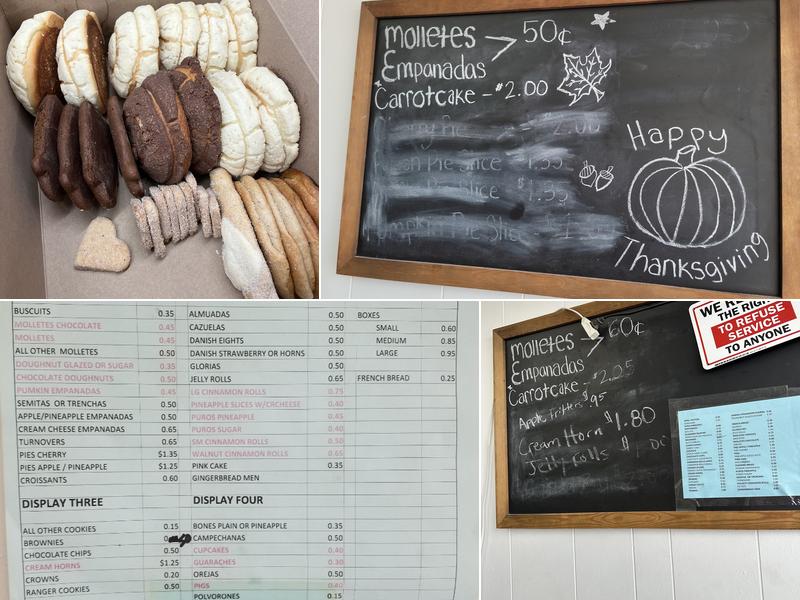 Molletes > 50¢
Empanadas
Carrotcake - $2.00
Pie 2.00
Pie Slice
Slice $1.35
Pumpkin Pie
Happy
Thanksgiving
BUSCUITS 0.35
MOLLETES CHOCOLATE 0.45
MOLLETES 0.45
ALL OTHER MOLLETES 0.50
DOUGHNUT GLAZED OR SUGAR 0.35
CHOCOLATE DOUGHNUTS 0.50
PUMKIN EMPANADAS 0.45
SEMITAS OR TRENCHAS 0.50
APPLE/PINEAPPLE EMPANADAS 0.50
CREAM CHEESE EMPANADAS 0.65
TURNOVERS 0.65
PIES CHERRY $1.35
PIES APPLE / PINEAPPLE $1.25
CROISSANTS 0.60
DISPLAY THREE
ALL OTHER COOKIES 0.15
BROWNIES
CHOCOLATE CHIPS 0.50
CREAM HORNS $1.25
CROWNS 0.20
RANGER COOKIES 0.50
ALMUADAS 0.50
CAZUELAS 0.50
DANISH EIGHTS 0.50
DANISH STRAWBERRY OR HORNS 0.50
GLORIAS 0.50
JELLY ROLLS 0.65
LG CINNAMON ROLLS 0.75
PINEAPPLE SLICES W/CRCHEESE 0.40
PUROS PINEAPPLE 0.45
PUROS SUGAR 0.40
SM CINNAMON ROLLS 0.50
WALNUT CINNAMON ROLLS 0.65
PINK CAKE 0.35
GINGERBREAD MEN
DISPLAY FOUR
BONES PLAIN OR PINEAPPLE 0.35
CAMPECHANAS 0.50
CUPCAKES 0.40
GUARACHES 0.30
OREJAS 0.50
PIGS 0.40
POLVORONES 0.15
BOXES
SMALL 0.60
MEDIUM 0.85
LARGE 0.95
FRENCH BREAD 0.25
Molletes > 60¢
Empanadas
Carrotcake - $2.25
Apple fritters $.95
Cream Horn $1.80
Jelly Rolls $1.00
THE RIGHT
TO REFUSE
SERVICE
TO ANYONE